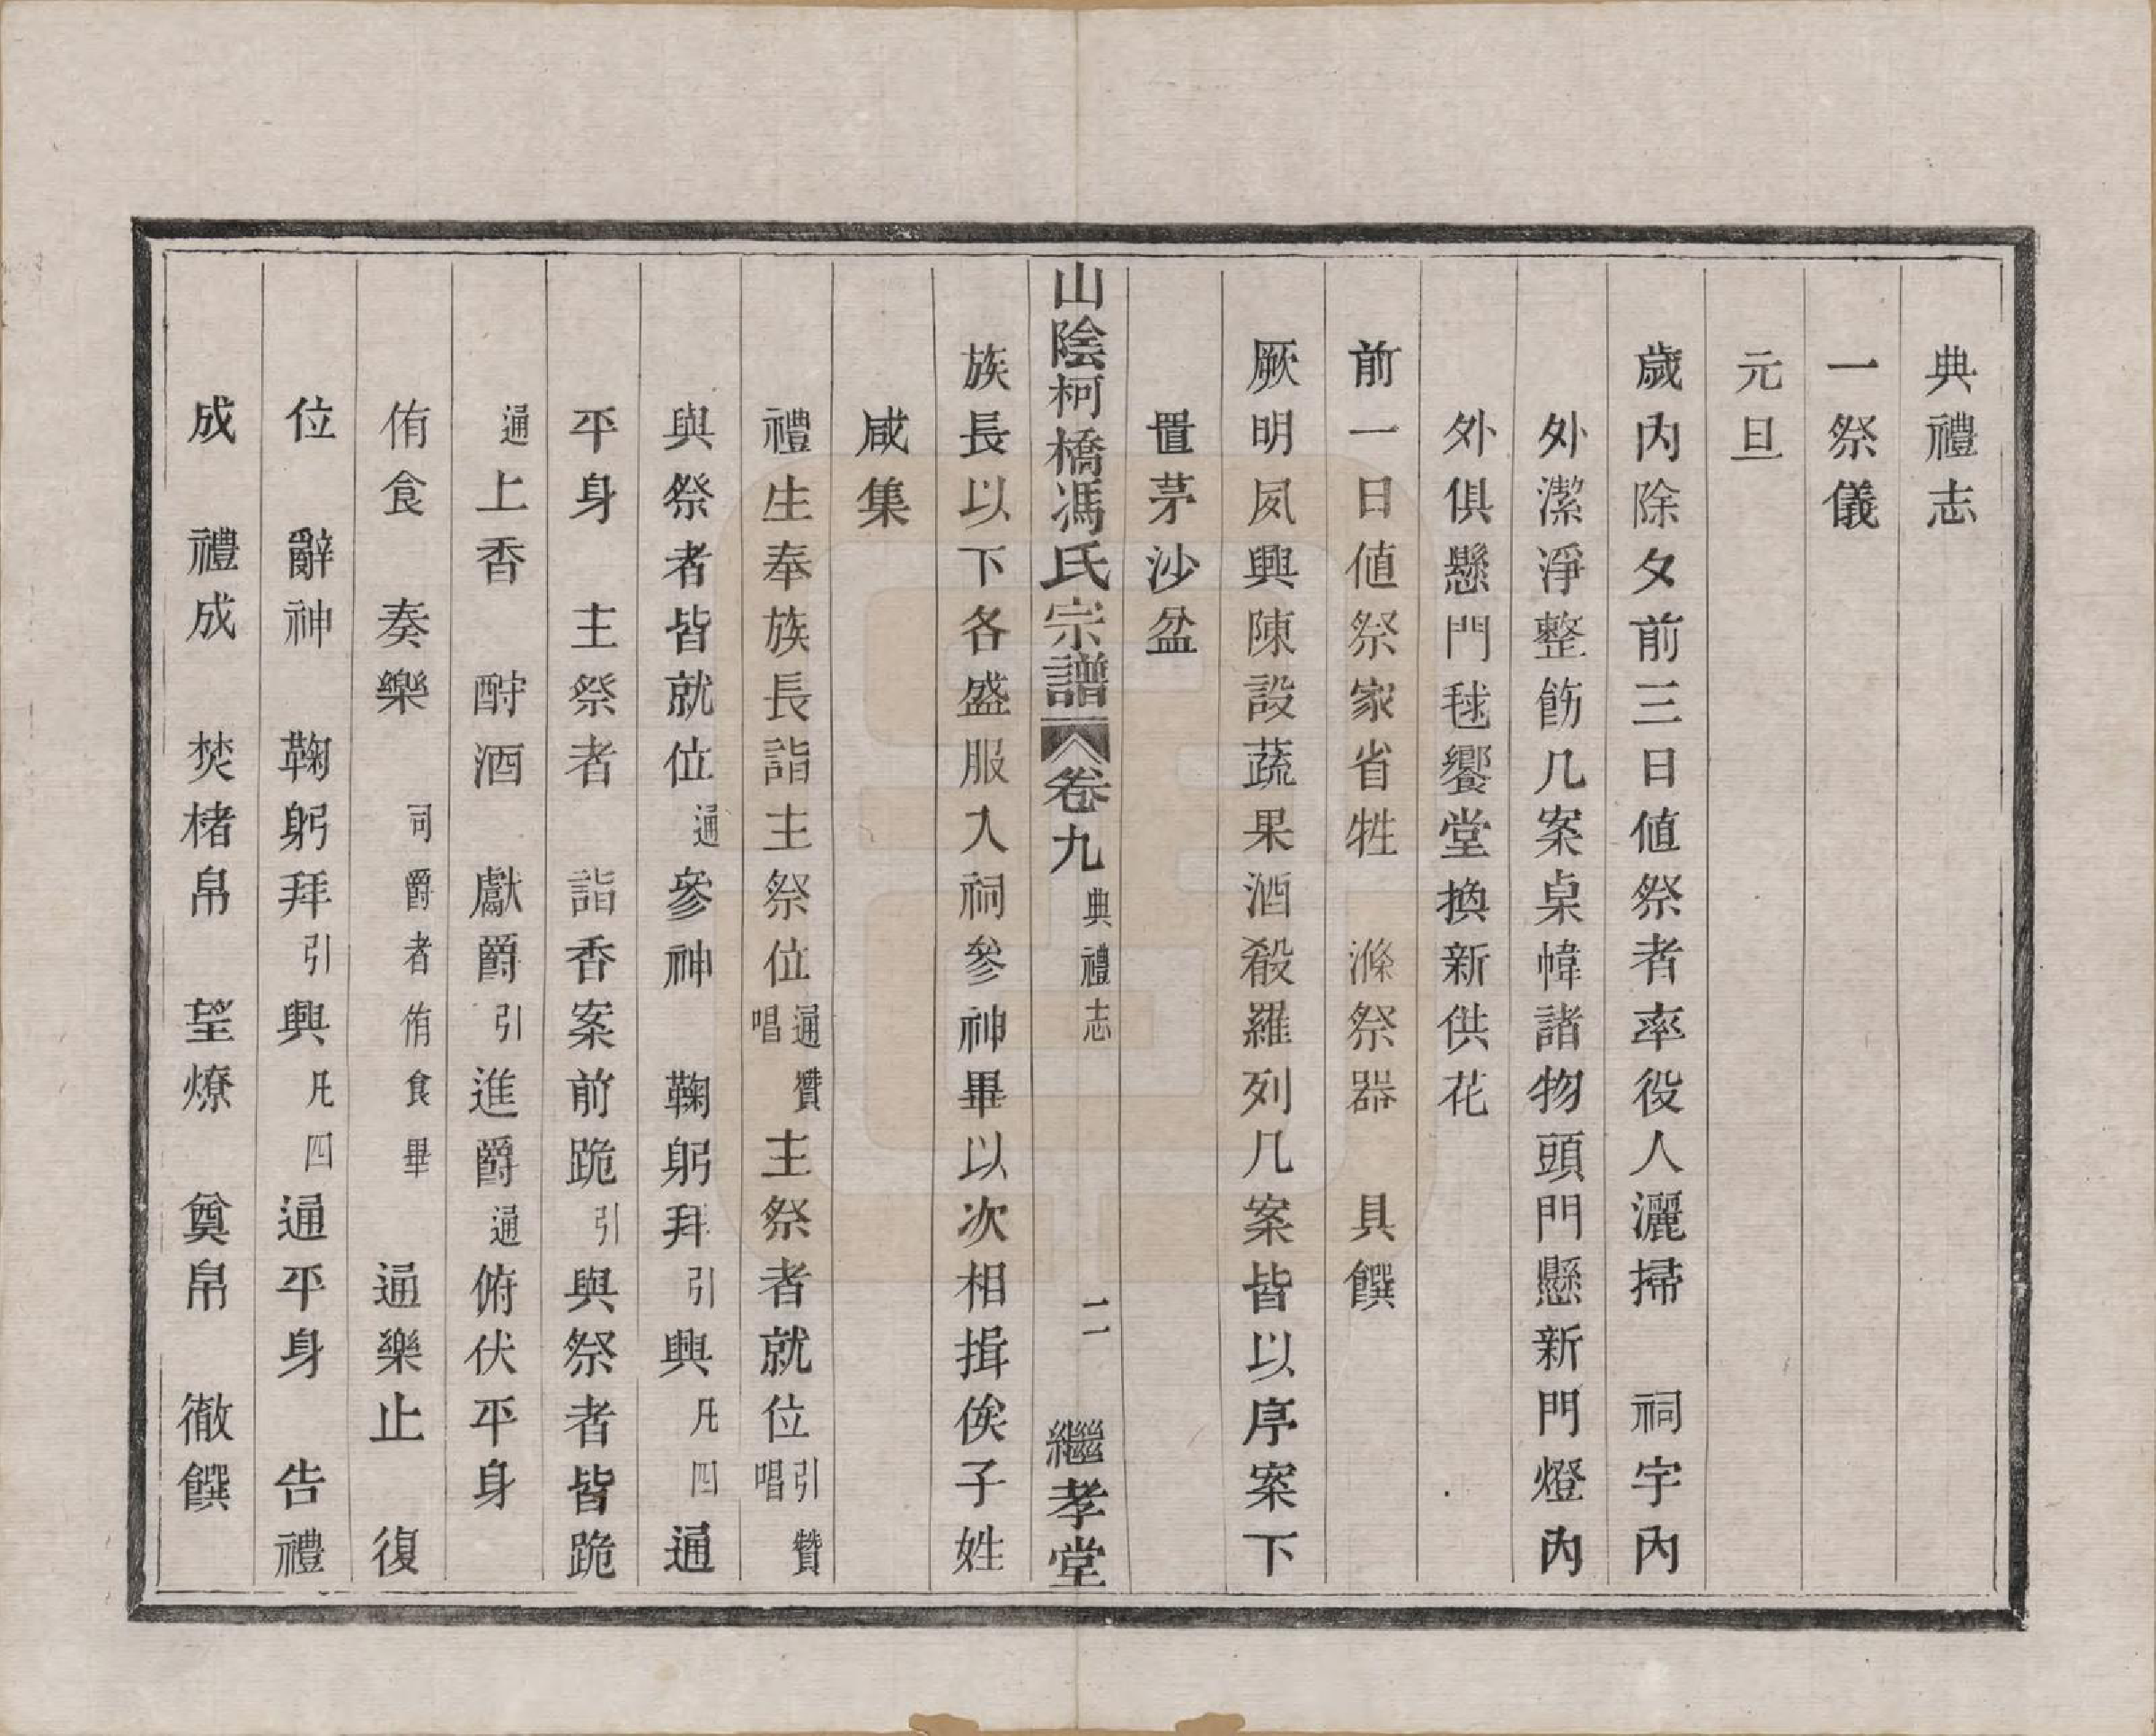 典禮志
一祭儀
元旦
歲內除夕前三日値祭者率役人灑掃　祠宇內
外潔淨整飭几案桌幃諸物頭門懸新門燈內
外俱懸門毬饗堂換新供花
前一日値祭家省牲　滌祭器　具饌
厥明夙興陳設蔬果酒殽羅列几案皆以序案下
置茅沙盆
山陰柯橋馮氏宗譜　卷九　典禮志　二　繼孝堂
族長以下各盛服入祠參神畢以次相揖俟子姓
咸集
禮生奉族長詣主祭位通唱贊主祭者就位引唱贊
與祭者皆就位通參神　鞠躬拜引興凡四通
平身　主祭者　詣香案前跪引與祭者皆跪
通上香　酹酒　獻爵引進爵通俯伏平身
侑食　奏樂　司爵者侑食畢　通樂止　復
位　辭神　鞠躬拜引興凡四通平身　告禮
成　禮成　焚楮帛　望燎　奠帛　徹饌